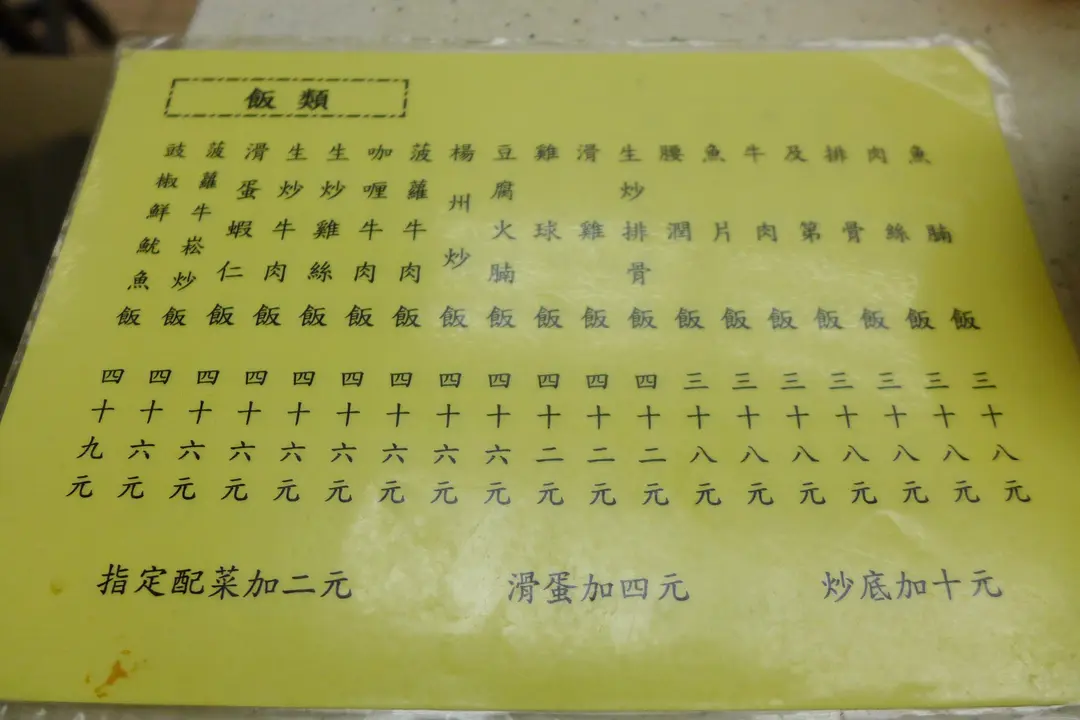 飯類
魚腩飯 三十八元
肉絲飯 三十八元
排骨飯 三十八元
及第飯 三十八元
牛肉飯 三十八元
魚片飯 三十八元
腰潤飯 三十八元
生炒排骨飯 四十二元
滑雞飯 四十二元
雞球飯 四十二元
豆腐火腩飯 四十六元
楊州炒飯 四十六元
菠蘿牛肉飯 四十六元
咖喱牛肉飯 四十六元
生炒雞絲飯 四十六元
生炒牛肉飯 四十六元
滑蛋蝦仁飯 四十六元
菠蘿牛崧炒飯 四十六元
豉椒鮮魷魚飯 四十九元
指定配菜加二元
滑蛋加四元
炒底加十元